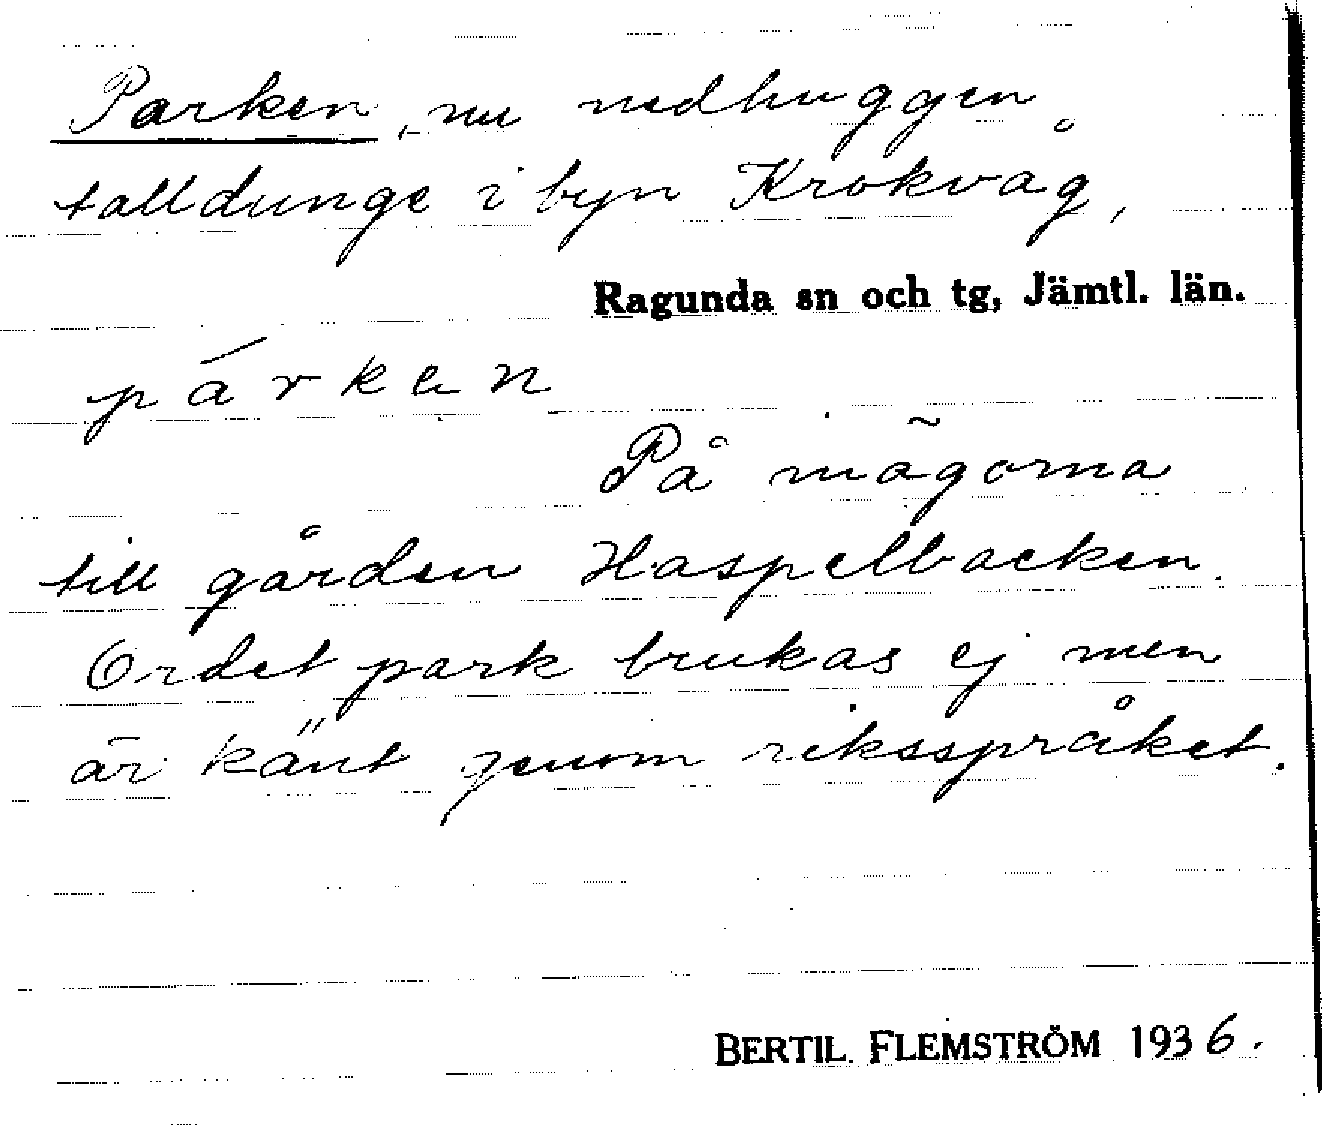 Parken, nu nedhuggen
talldunge i byn Krokvåg,
Ragunda sn och tg, Jämtl. län.
párkan
På mãgorna
till gården Haspelbacken.
Ordet park brukas ej men
är känt genom riksspråket.
BERTIL FLEMSTRÖM 1936.